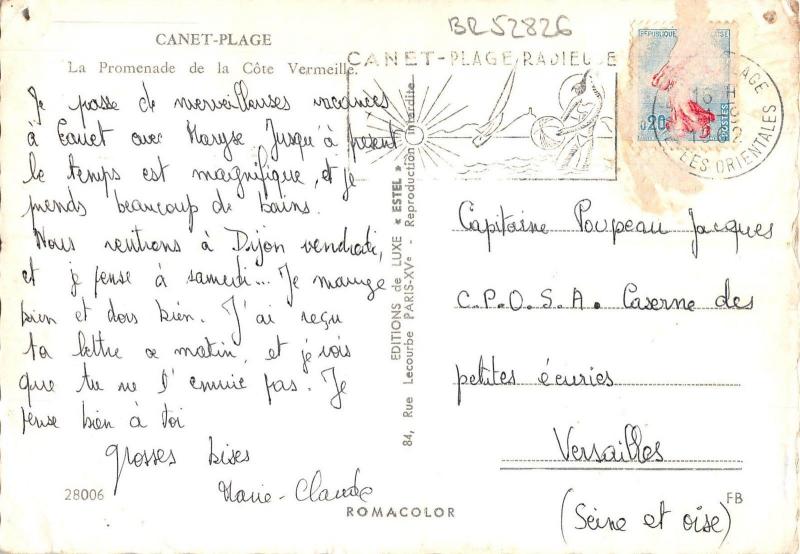 BR52826
CANET-PLAGE
La Promenade de la Côte Vermeille.
CANET-PLAGE RADIEUSE
REPUBLIQUE
0,20
POSTES
PLAGE
16 H
LES ORIENTALES
Je passe de merveilleuses vacances
à Canet avec Maryse. Jusqu'à présent
le temps est magnifique, et je
prends beaucoup de bains.
Nous rentrons à Dijon vendredi,
et je pense à samedi... Je mange
bien et dors bien. J'ai reçu
ta lettre ce matin, et je vois
que tu ne t'ennuie pas. Je
pense bien à toi
grosses bises
Marie-Claude
EDITIONS de LUXE « ESTEL »
84, Rue Lecourbe PARIS-XVe - Reproduction interdite
Capitaine Poupeau Jacques
C.P.O.S.A. Caserne des
petites écuries
Versailles
(Seine et oise)
28006
ROMACOLOR
FB